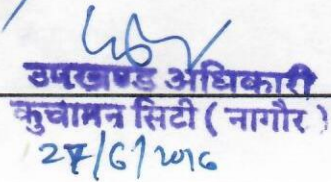 उपखण्ड अधिकारी
कुचामन सिटी ( नागौर )
27/6/2016